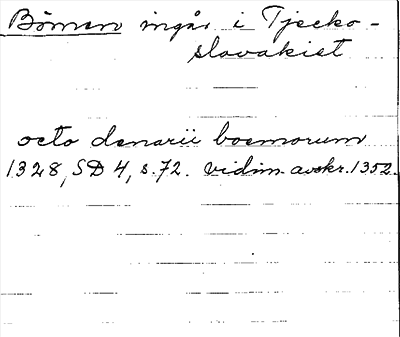 Böhmen ingår i Tjecko-
slovakiet
octo denarii boemorum
1328, SD 4, s. 72. vidim. avskr. 1352.